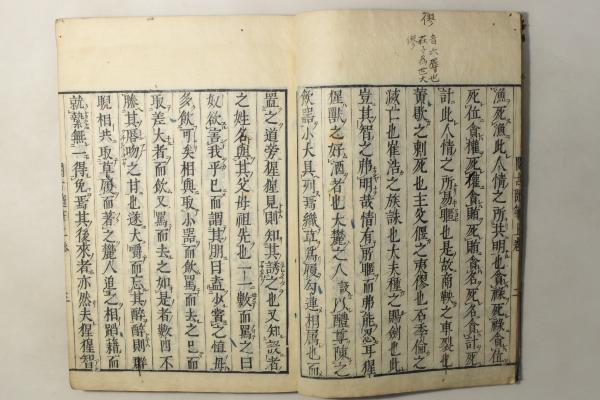 僇
音六辱也
荘子為世大
僇
漁死漁此人情之所共明也貪祿死祿貪位
死位貪權死權貪賄死賄貪名死名貪計死
計此人情之所易聏也是故商鞅之車裂也
黄歇之刺死也主父偃之夷僇也石季倫之
滅亡也崔浩之族誅也大夫種之賜劍也此
豈其智之弗明哉情有所聏而弗能忍耳猩
猩獸之好酒者也大麓之人設以醴尊陳之
飲器小大具列焉織草爲屨勾連相属也而
置之道旁猩猩見則知其誘之也又知設者
之姓名與其父母祖先也一一數而罵之曰
奴欲害我乎已而謂其朋曰盍少嘗之慎毋
多飲矣相與取小器而飲罵而去之已而
取差大者而飲又罵而去之如是者數四不
勝其唇吻之甘也遂大嚼而忘其醉醉則群
睨相共取草屨而著之麓人追之相蹈藉而
就縶無一得免焉其後來者亦然夫猩猩智